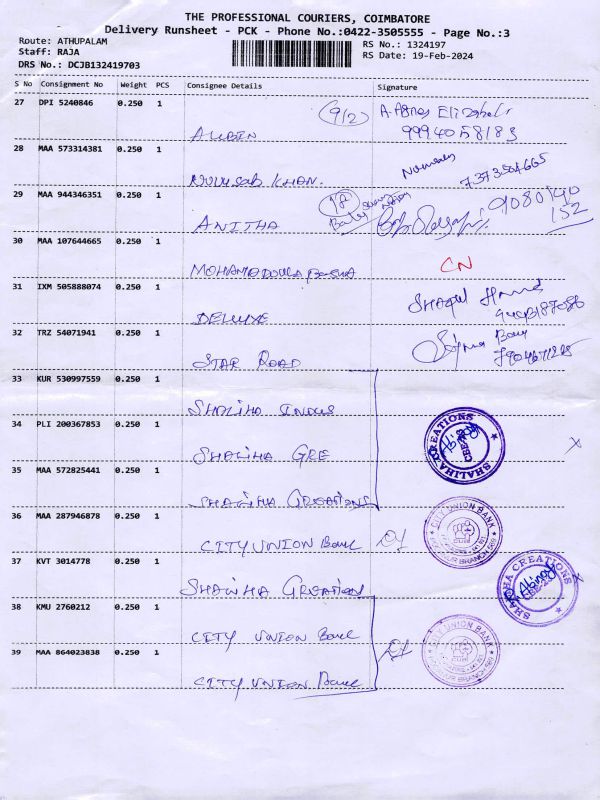 THE PROFESSIONAL COURIERS, COIMBATORE
Delivery Runsheet - PCK - Phone No.:0422-3505555 - Page No.:3
Route: ATHUPALAM
RS No.: 1324197
Staff: RAJA
RS Date: 19-Feb-2024
DRS No.: DCJB132419703
S No Consignment No Weight PCS Consignee Details Signature
27 DPI 5240846 0.250 1
ALBIN
9/2
9994058183
28 MAA 573314381 0.250 1
KHAN.
29 MAA 944346351 0.250 1
ANITHA
9080940
152
30 MAA 107644665 0.250 1
CN
31 IXM 505888074 0.250 1
DELUXE
32 TRZ 54071941 0.250 1
STAR ROAD
33 KUR 530997559 0.250 1
SHALIHA
34 PLI 200367853 0.250 1
SHALIHA GRE
35 MAA 572825441 0.250 1
SHALIHA CREATIONS
SHALIHA CREATIONS
36 MAA 287946878 0.250 1
CITY UNION Bank
CITY UNION BANK
37 KVT 3014778 0.250 1
SHALIHA CREATION
SHALIHA CREATIONS
38 KMU 2760212 0.250 1
CITY UNION Bank
CITY UNION BANK
39 MAA 864023838 0.250 1
CITY UNION Bank